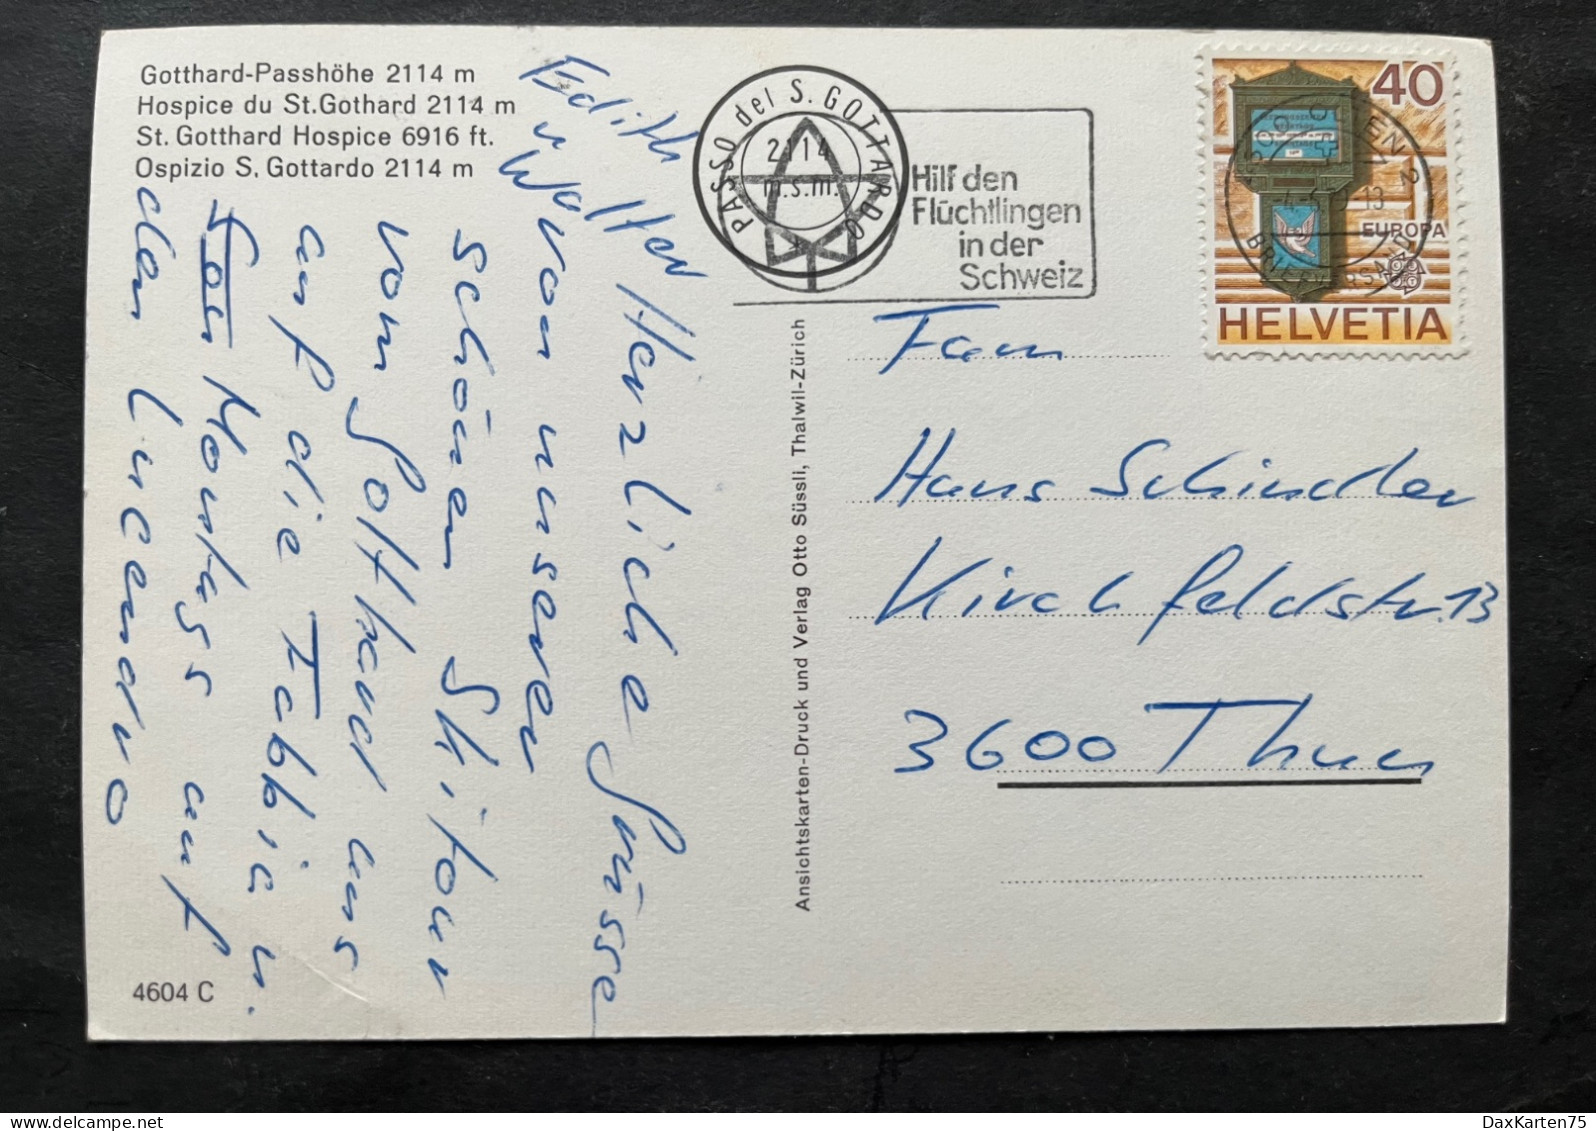 Gotthard-Passhöhe 2114 m
Hospice du St.Gothard 2114 m
St. Gotthard Hospice 6916 ft.
Ospizio S. Gottardo 2114 m
Herzliche Grüsse
von unserer
schönen Skitour
vom Gotthard aus
auf die Fabbia u.
Montags auf
den Lucendro
Edith
u Walter
4604 C
Ansichtskarten-Druck und Verlag Otto Süssli, Thalwil-Zürich
PASSO del S. GOTTARDO
2114
m.s.m.
Hilf den
Flüchtlingen
in der
Schweiz
40
EUROPA
HELVETIA
BRIEFVERSAND
Fam
Hans Schindler
Kirchfeldstr. 13
3600 Thun
DaxKarten75